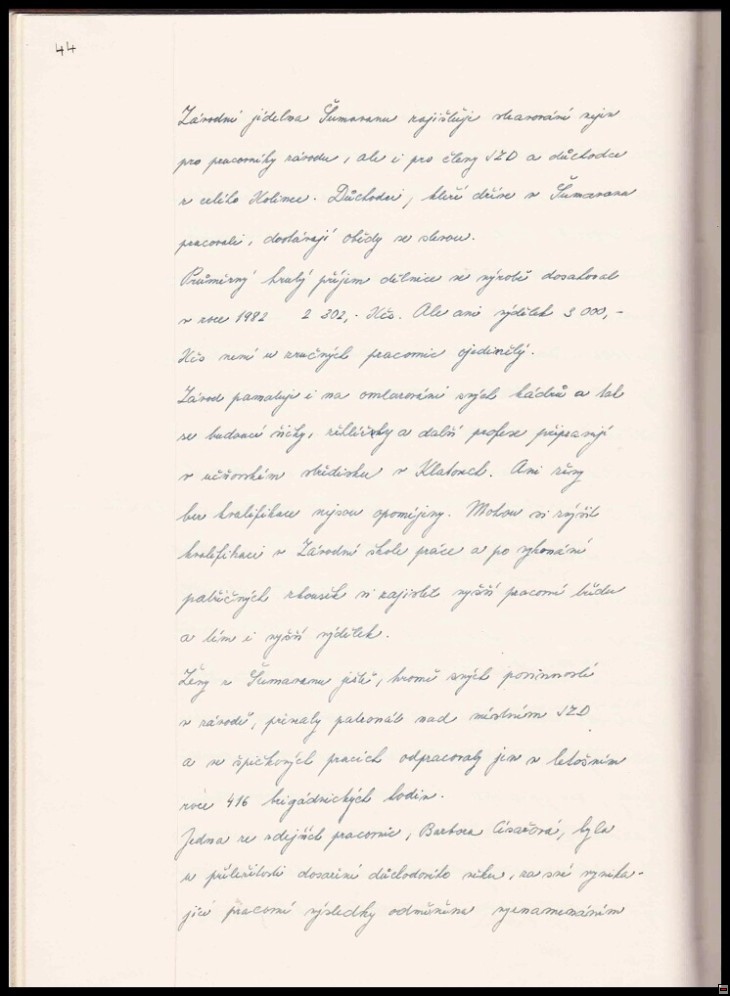 44
Závodní jídelna Šumavanu zajišťuje stravování nejen
pro pracovníky závodu, ale i pro členy JZD a důchodce
z celého Kolince. Důchodci, kteří dříve v Šumavanu
pracovali, dostávají obědy se slevou.
Průměrný hrubý příjem dělnice ve výrobě dosahoval
v roce 1982 2 302,- Kčs. Ale ani výdělek 3 000,-
Kčs není u zručných pracovnic ojedinělý.
Závod pamatuje i na omlazování svých kádrů a tak
se budoucí šičky, žehlířky a další profese připravují
v učňovském středisku v Klatovech. Ani ženy
bez kvalifikace nejsou opomíjeny. Mohou si zvýšit
kvalifikaci v Závodní škole práce a po vykonání
patřičných zkoušek si zajistit vyšší pracovní třídu
a tím i vyšší výdělek.
Ženy z Šumavanu ještě, kromě svých povinností
v závodě, převzaly patronát nad místním JZD
a ve špičkových pracích odpracovaly jen v letošním
roce 416 brigádnických hodin.
Jedna ze zdejších pracovnic, Barbora Císařová, byla
u příležitosti dosažení důchodového věku, za své vynika-
jící pracovní výsledky odměněna vyznamenáním